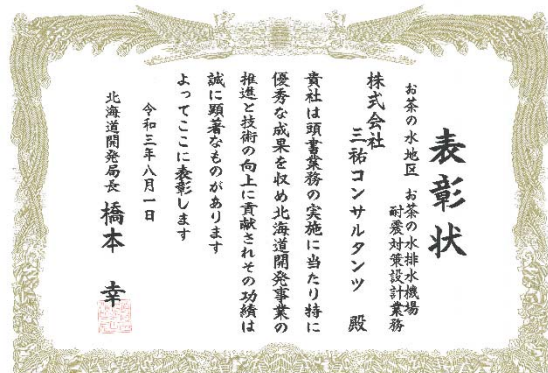 表彰状
お茶の水地区 お茶の水排水機場
耐震対策設計業務
株式会社
三祐コンサルタンツ 殿
貴社は頭書業務の実施に当たり特に
優秀な成果を収め北海道開発事業の
推進と技術の向上に貢献されその功績は
誠に顕著なものがあります
よってここに表彰します
令和三年八月一日
北海道開発局長 橋本 幸